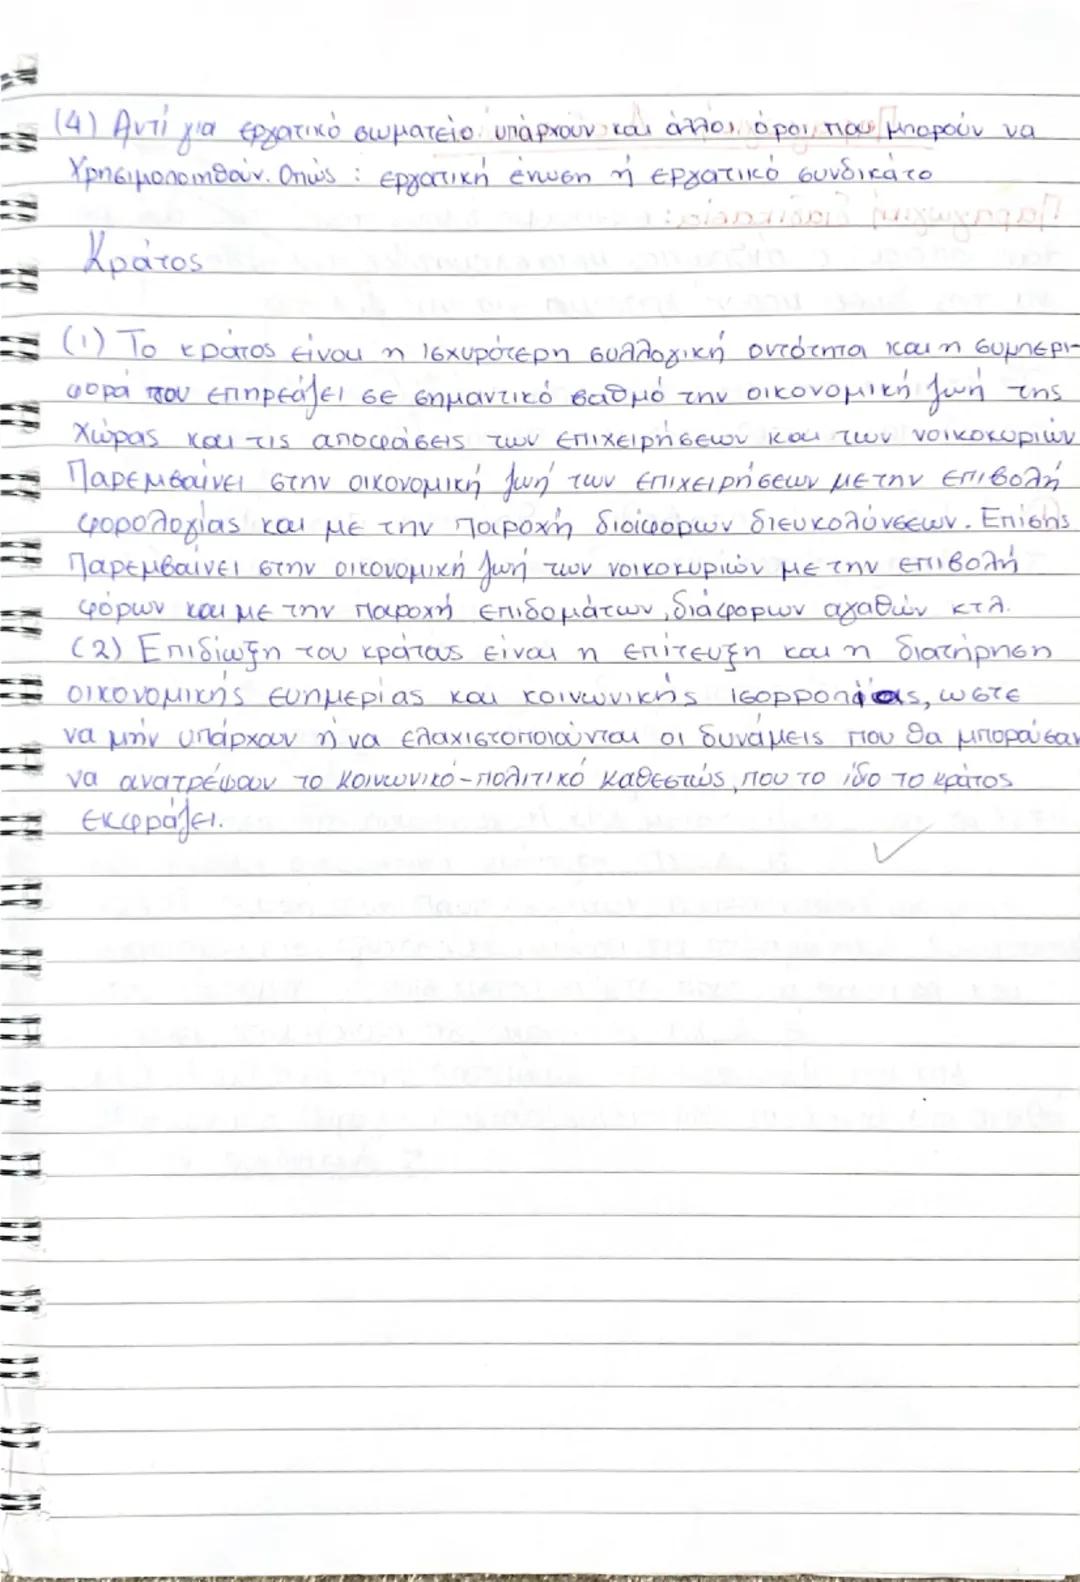 (4) Αντί για εργατικό σωματείο υπάρχουν και άλλοι όροι που μπορούν να
χρησιμοποιηθούν. Όπως : εργατική ένωση ή εργατικό συνδικάτο
Κράτος
(1) Το κράτος είναι η ισχυρότερη συλλογική οντότητα και η συμπερι-
φορά του επηρεάζει σε σημαντικό βαθμό την οικονομική ζωή της
χώρας και τις αποφάσεις των επιχειρήσεων και των νοικοκυριών
Παρεμβαίνει στην οικονομική ζωή των επιχειρήσεων με την επιβολή
φορολογίας και με την παροχή διάφορων διευκολύνσεων. Επίσης
Παρεμβαίνει στην οικονομική ζωή των νοικοκυριών με την επιβολή
φόρων και με την παροχή επιδομάτων, διάφορων αγαθών κτλ.
(2) Επιδίωξη του κράτους είναι η επίτευξη και η διατήρηση
οικονομικής ευημερίας και κοινωνικής ισορροπίας, ώστε
να μην υπάρχουν ή να ελαχιστοποιούνται οι δυνάμεις που θα μπορούσαν
να ανατρέψουν το κοινωνικό-πολιτικό καθεστώς, που το ίδο το κράτος
εκφράζει.